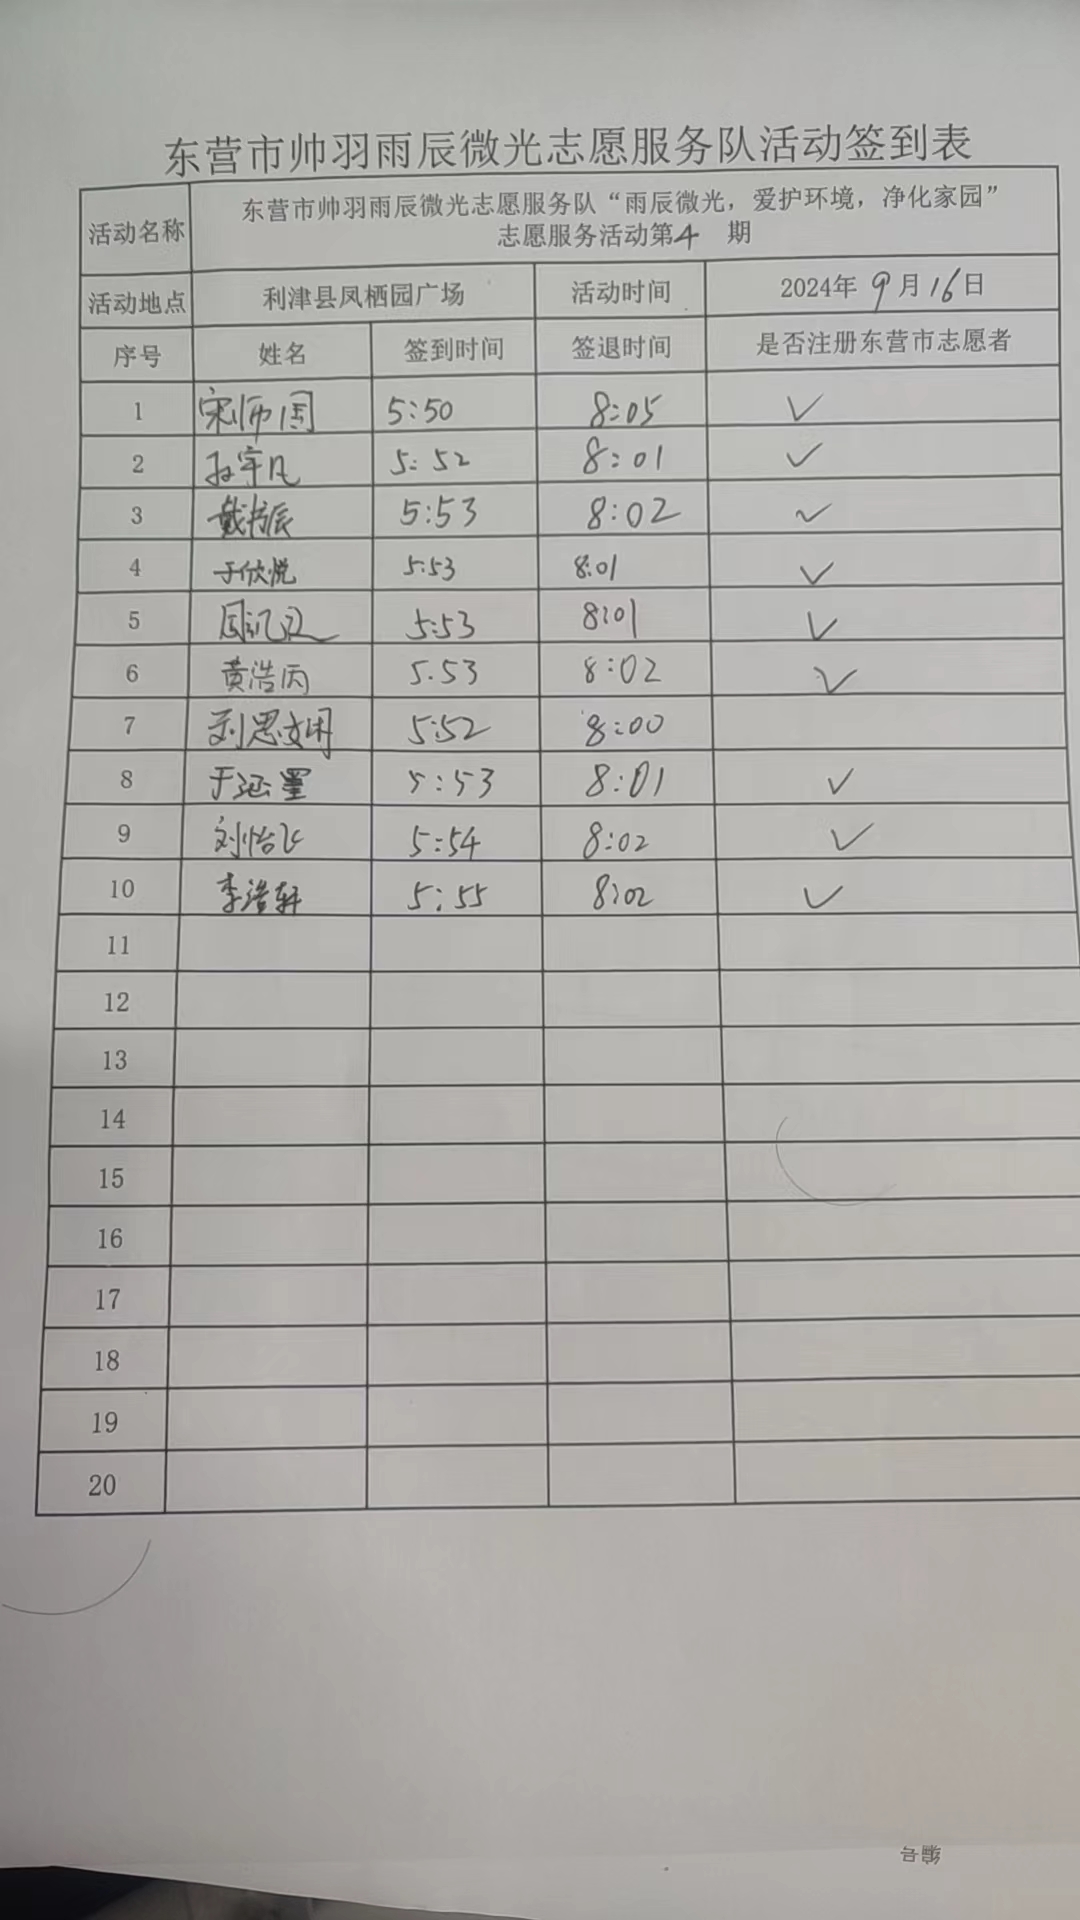 东营市帅羽雨辰微光志愿服务队活动签到表
活动名称 东营市帅羽雨辰微光志愿服务队“雨辰微光，爱护环境，净化家园”
志愿服务活动第4 期
活动地点 利津县凤栖园广场 活动时间 2024年9月16日
序号 姓名 签到时间 签退时间 是否注册东营市志愿者
1 5:50 8:05 ✓
2 孙宇凡 5:52 8:01 ✓
3 戴书辰 5:53 8:02 ✓
4 于欣悦 5:53 8:01 ✓
5 5:53 8:01 ✓
6 黄浩丙 5.53 8:02 ✓
7 刘思 5:52 8:00
8 于涵墨 5:53 8:01 ✓
9 刘怡飞 5:54 8:02 ✓
10 李浩轩 5:55 8:02 ✓
11
12
13
14
15
16
17
18
19
20
编号